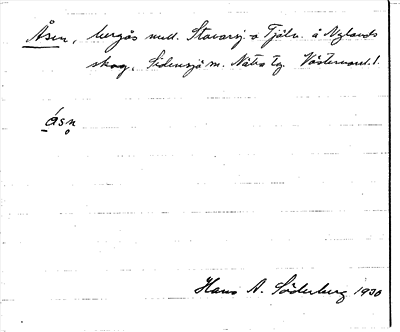 Åsen, bergås mell. Stavarsj. o Tjäln. å Nylands
skog, Sidensjö sn. Nätra tg. Västernorrl. l.
åsn̥
Hans A. Söderberg 1930